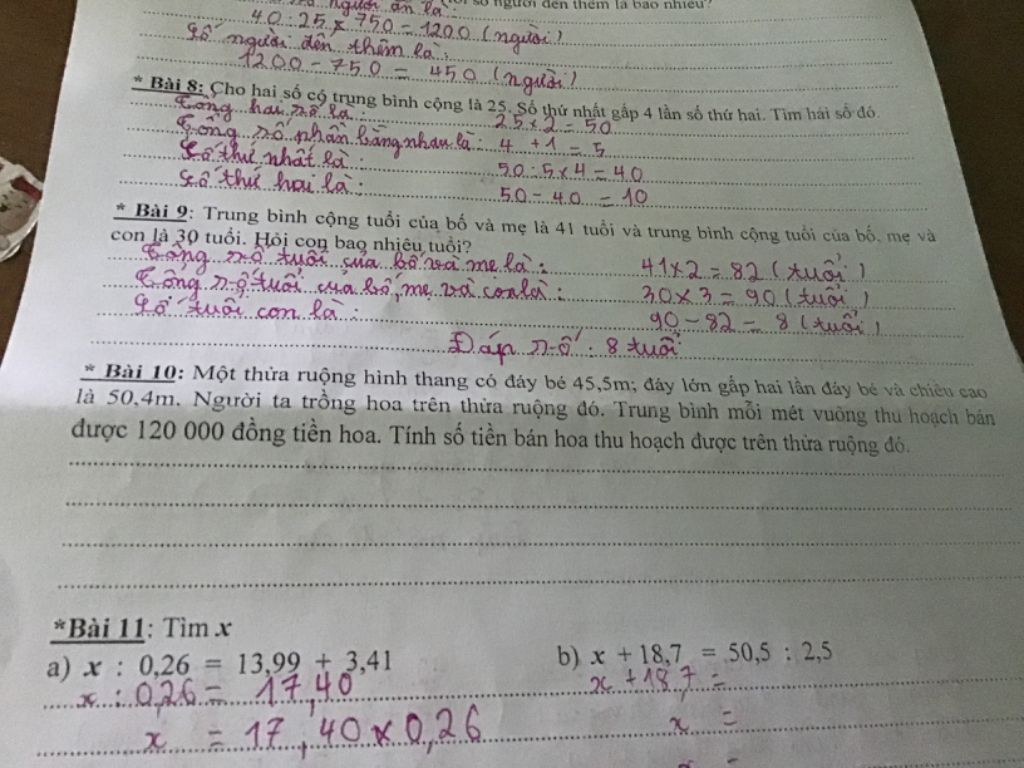 người ăn là :
số người đến thêm là bao nhiêu?
40 : 25 x 750 = 1200 (người)
Số người đến thêm là :
1200 - 750 = 450 (người)
* Bài 8: Cho hai số có trung bình cộng là 25. Số thứ nhất gấp 4 lần số thứ hai. Tìm hai số đó.
Tổng hai số là : 25 x 2 = 50
Tổng số phần bằng nhau là : 4 + 1 = 5
Số thứ nhất là : 50 : 5 x 4 = 40
Số thứ hai là : 50 - 40 = 10
* Bài 9: Trung bình cộng tuổi của bố và mẹ là 41 tuổi và trung bình cộng tuổi của bố, mẹ và
con là 30 tuổi. Hỏi con bao nhiêu tuổi?
Tổng số tuổi của bố và mẹ là : 41 x 2 = 82 (tuổi)
Tổng số tuổi của bố, mẹ và con là : 30 x 3 = 90 (tuổi)
Số tuổi con là : 90 - 82 = 8 (tuổi)
Đáp số : 8 tuổi
* Bài 10: Một thửa ruộng hình thang có đáy bé 45,5m; đáy lớn gấp hai lần đáy bé và chiều cao
là 50,4m. Người ta trồng hoa trên thửa ruộng đó. Trung bình mỗi mét vuông thu hoạch bán
được 120 000 đồng tiền hoa. Tính số tiền bán hoa thu hoạch được trên thửa ruộng đó.
*Bài 11: Tìm x
a) x : 0,26 = 13,99 + 3,41 b) x + 18,7 = 50,5 : 2,5
x : 0,26 = 17,40 x + 18,7 =
x = 17,40 x 0,26 x =